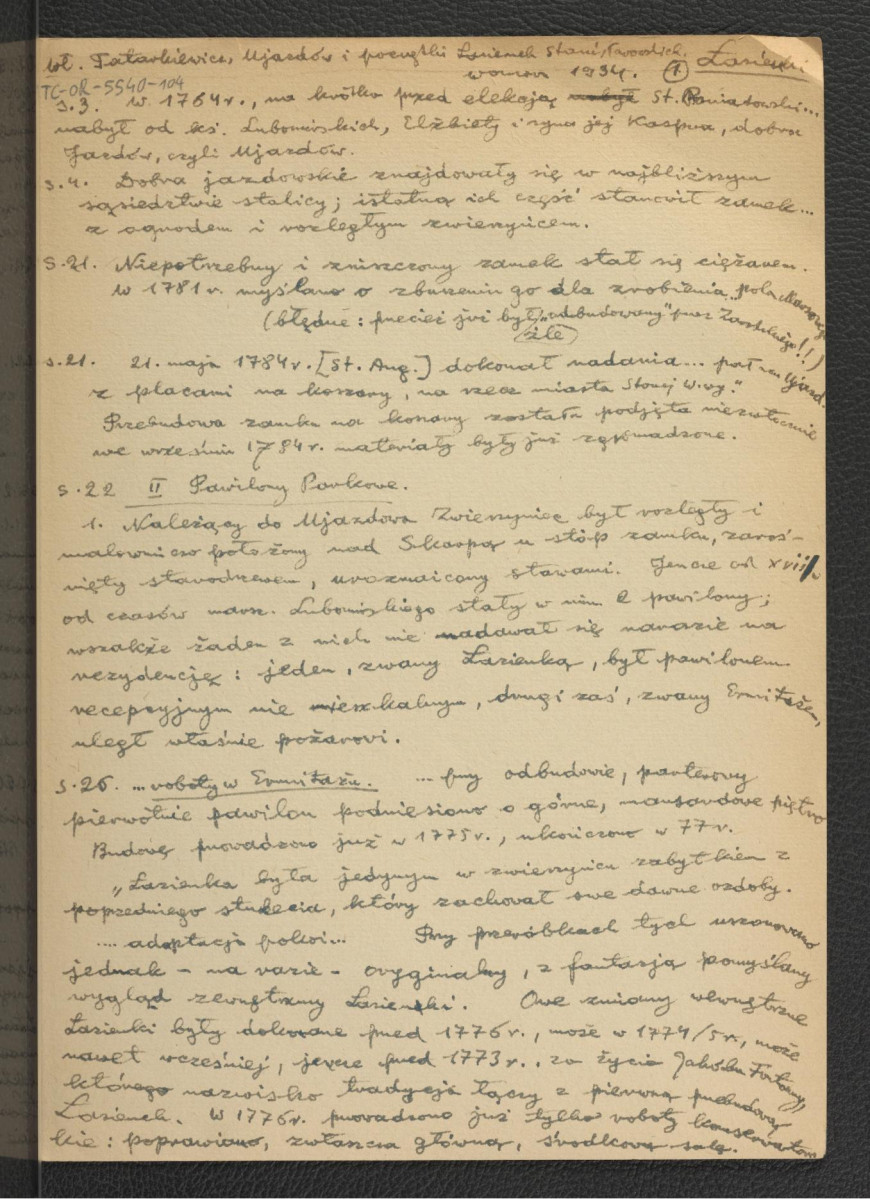 Wł. Tatarkiewicz, Ujazdów i początki Łazienek Stanisławowskich.
Łazienki
Warszawa 1934. 1
TC-OR-5540-104
s.3. W 1764 r., na krótko przed elekcją St. Poniatowski...
nabył od ks. Lubomirskich, Elżbiety i syna jej Kaspra, dobra
Jazdów, czyli Ujazdów.
s.4. Dobra jazdowskie znajdowały się w najbliższym
sąsiedztwie stolicy; istotną ich część stanowił zamek...
z ogrodem i rozległym zwierzyńcem.
s.21. Niepotrzebny i zniszczony zamek stał się ciężarem.
W 1781 r. myślano o zburzeniu go dla zrobienia „pola Marsowego"
(błędne: przecież już był „odbudowany" przez Zawadzkiego!!)
(źle)
s.21. 21. maja 1784 r. [St. Aug.] dokonał nadania... pał. Ujazd.
z placami na koszary, na rzecz miasta Starej W-wy."
Przebudowa zamku na koszary została podjęta niezwłocznie
we wrześniu 1784 r. materiały były już zgromadzone.
s.22 II Pawilony Parkowe.
1. Należący do Ujazdowa Zwierzyniec był rozległy i
malowniczo położony nad Skarpą u stóp zamku, zaroś-
nięty starodrzewem, urozmaicony stawami. Jeszcze od XVII w
od czasów marsz. Lubomirskiego stały w nim 2 pawilony;
wszakże żaden z nich nie nadawał się narazie na
rezydencję: jeden, zwany Łazienką, był pawilonem
recepcyjnym nie mieszkalnym, drugi zaś, zwany Ermitażem,
uległ właśnie pożarowi.
s.26. ... roboty w Ermitażu. ... przy odbudowie, parterowy
pierwotnie pawilon podniesiono o górne, mansardowe piętro
Budowę prowadzono już w 1775 r., ukończono w 77 r.
„Łazienka była jedynym w zwierzyńcu zabytkiem z
poprzedniego stulecia, który zachował swe dawne ozdoby.
.... adaptacja pokoi... Przy przeróbkach tych uszanowano
jednak – na razie – oryginalny, z fantazją pomyślany
wygląd zewnętrzny Łazienki. Owe zmiany wewnętrzne
Łazienki były dokonane przed 1776 r., może w 1774/5 r., może
nawet wcześniej, jeszcze przed 1773 r., za życia Jakóba Fontany,
którego nazwisko tradycja łączy z pierwszą przebudową
Łazienek. W 1776 r. prowadzono już tylko roboty konserwators
kie: poprawiano, zwłaszcza główną, środkową salę.